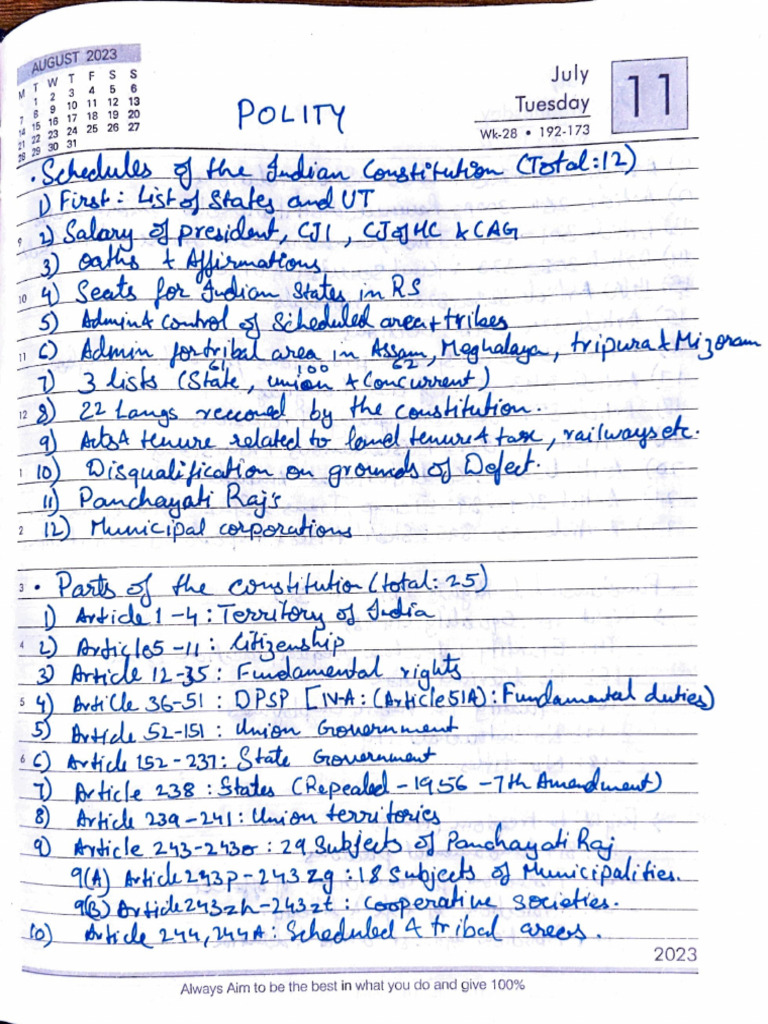 AUGUST 2023
M T W T F S S
1 2 3 4 5 6
7 8 9 10 11 12 13
14 15 16 17 18 19 20
21 22 23 24 25 26 27
28 29 30 31
July
Tuesday
Wk-28 • 192-173
11
POLITY
• Schedules of the Indian Constitution (Total:12)
1) First: List of States and UT
9 2) Salary of president, CJI, CJ of HC & CAG
3) Oaths & Affirmations
10 4) Seats for Indian States in RS
5) Admin & control of Scheduled area & tribes
11 6) Admin for tribal area in Assam, Meghalaya, tripura & Mizoram
7) 3 lists (State 61, union 100 & Concurrent 62)
12 8) 22 Langs by the constitution.
9) Acts & tenure related to land tenure & tax, railways etc.
1 10) Disqualification on grounds of Defect.
11) Panchayati Raj's
2 12) Municipal corporations
3 • Parts of the constitution (total: 25)
1) Article 1-4: Territory of India
4 2) Article 5-11: Citizenship
3) Article 12-35: Fundamental rights
5 4) Article 36-51: DPSP [IV-A: (Article 51A): Fundamental duties)
5) Article 52-151: Union Government
6 6) Article 152-237: State Government
7) Article 238: States (Repealed - 1956 - 7th Amendment)
8) Article 239-241: Union territories
9) Article 243-243o: 29 Subjects of Panchayati Raj
9(A) Article 243p-243zg: 18 Subjects of Municipalities.
9(B) Article 243zh-243zt: Cooperative societies.
10) Article 244, 244A: Scheduled & tribal areas.
2023
Always Aim to be the best in what you do and give 100%